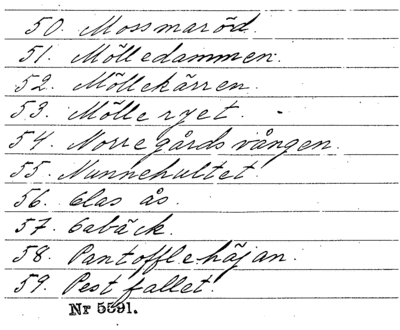 50. Mossmaröd.
51. Mölledammen.
52. Möllekärren.
53. Mölle ryet.
54. Norregårdsvången.
55. Nunnehultet
56. Olas ås.
57. Oabäck.
58. Pantofflehäjan.
59. Pestfallet.
Nr 5591.